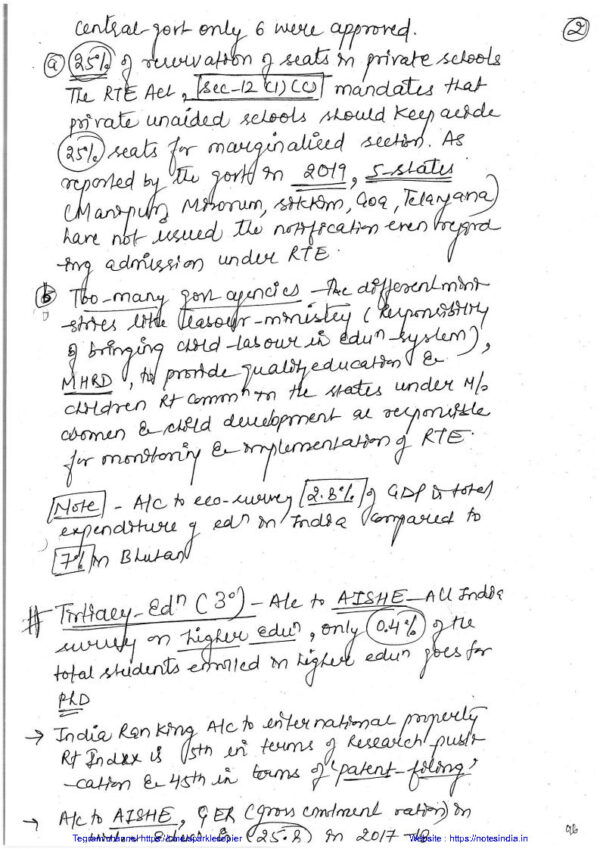 central govt only 6 were approved.
2
a 25% of reservation of seats in private schools
The RTE Act, Sec-12 (1) (C) mandates that
private unaided schools should keep aside
25% seats for marginalised section. As
reported by the govt in 2019, 5-states
(Manipur, Mizorum, sikkim, Goa, Telangana)
have not issued the notification even regard
-ing admission under RTE.
b Too-many govt agencies - the different mini
-stries like leabour-ministry (responsibility
of bringing child-labour in edun system),
MHRD, to provide quality education &
children Rt commn in the states under M/o
women & child development are responsible
for monitoring & implementation of RTE.
Note - A/c to eco-survey 2.8% of GDP is total
expenditure of edn in India compared to
7% in Bhutan
# Tertiary-Edn (3°) - A/c to AISHE - All India
survey on higher edun, only 0.4% of the
total students enrolled in higher edun goes for
PhD
→ India Ranking A/c to international property
Rt Index is 5th in terms of Research publi
-cation & 45th in terms of 'patent-filing'
→ A/c to AISHE, GER (gross enrolment ration) in
(25.8) in 2017-18
Website : https://notesindia.in